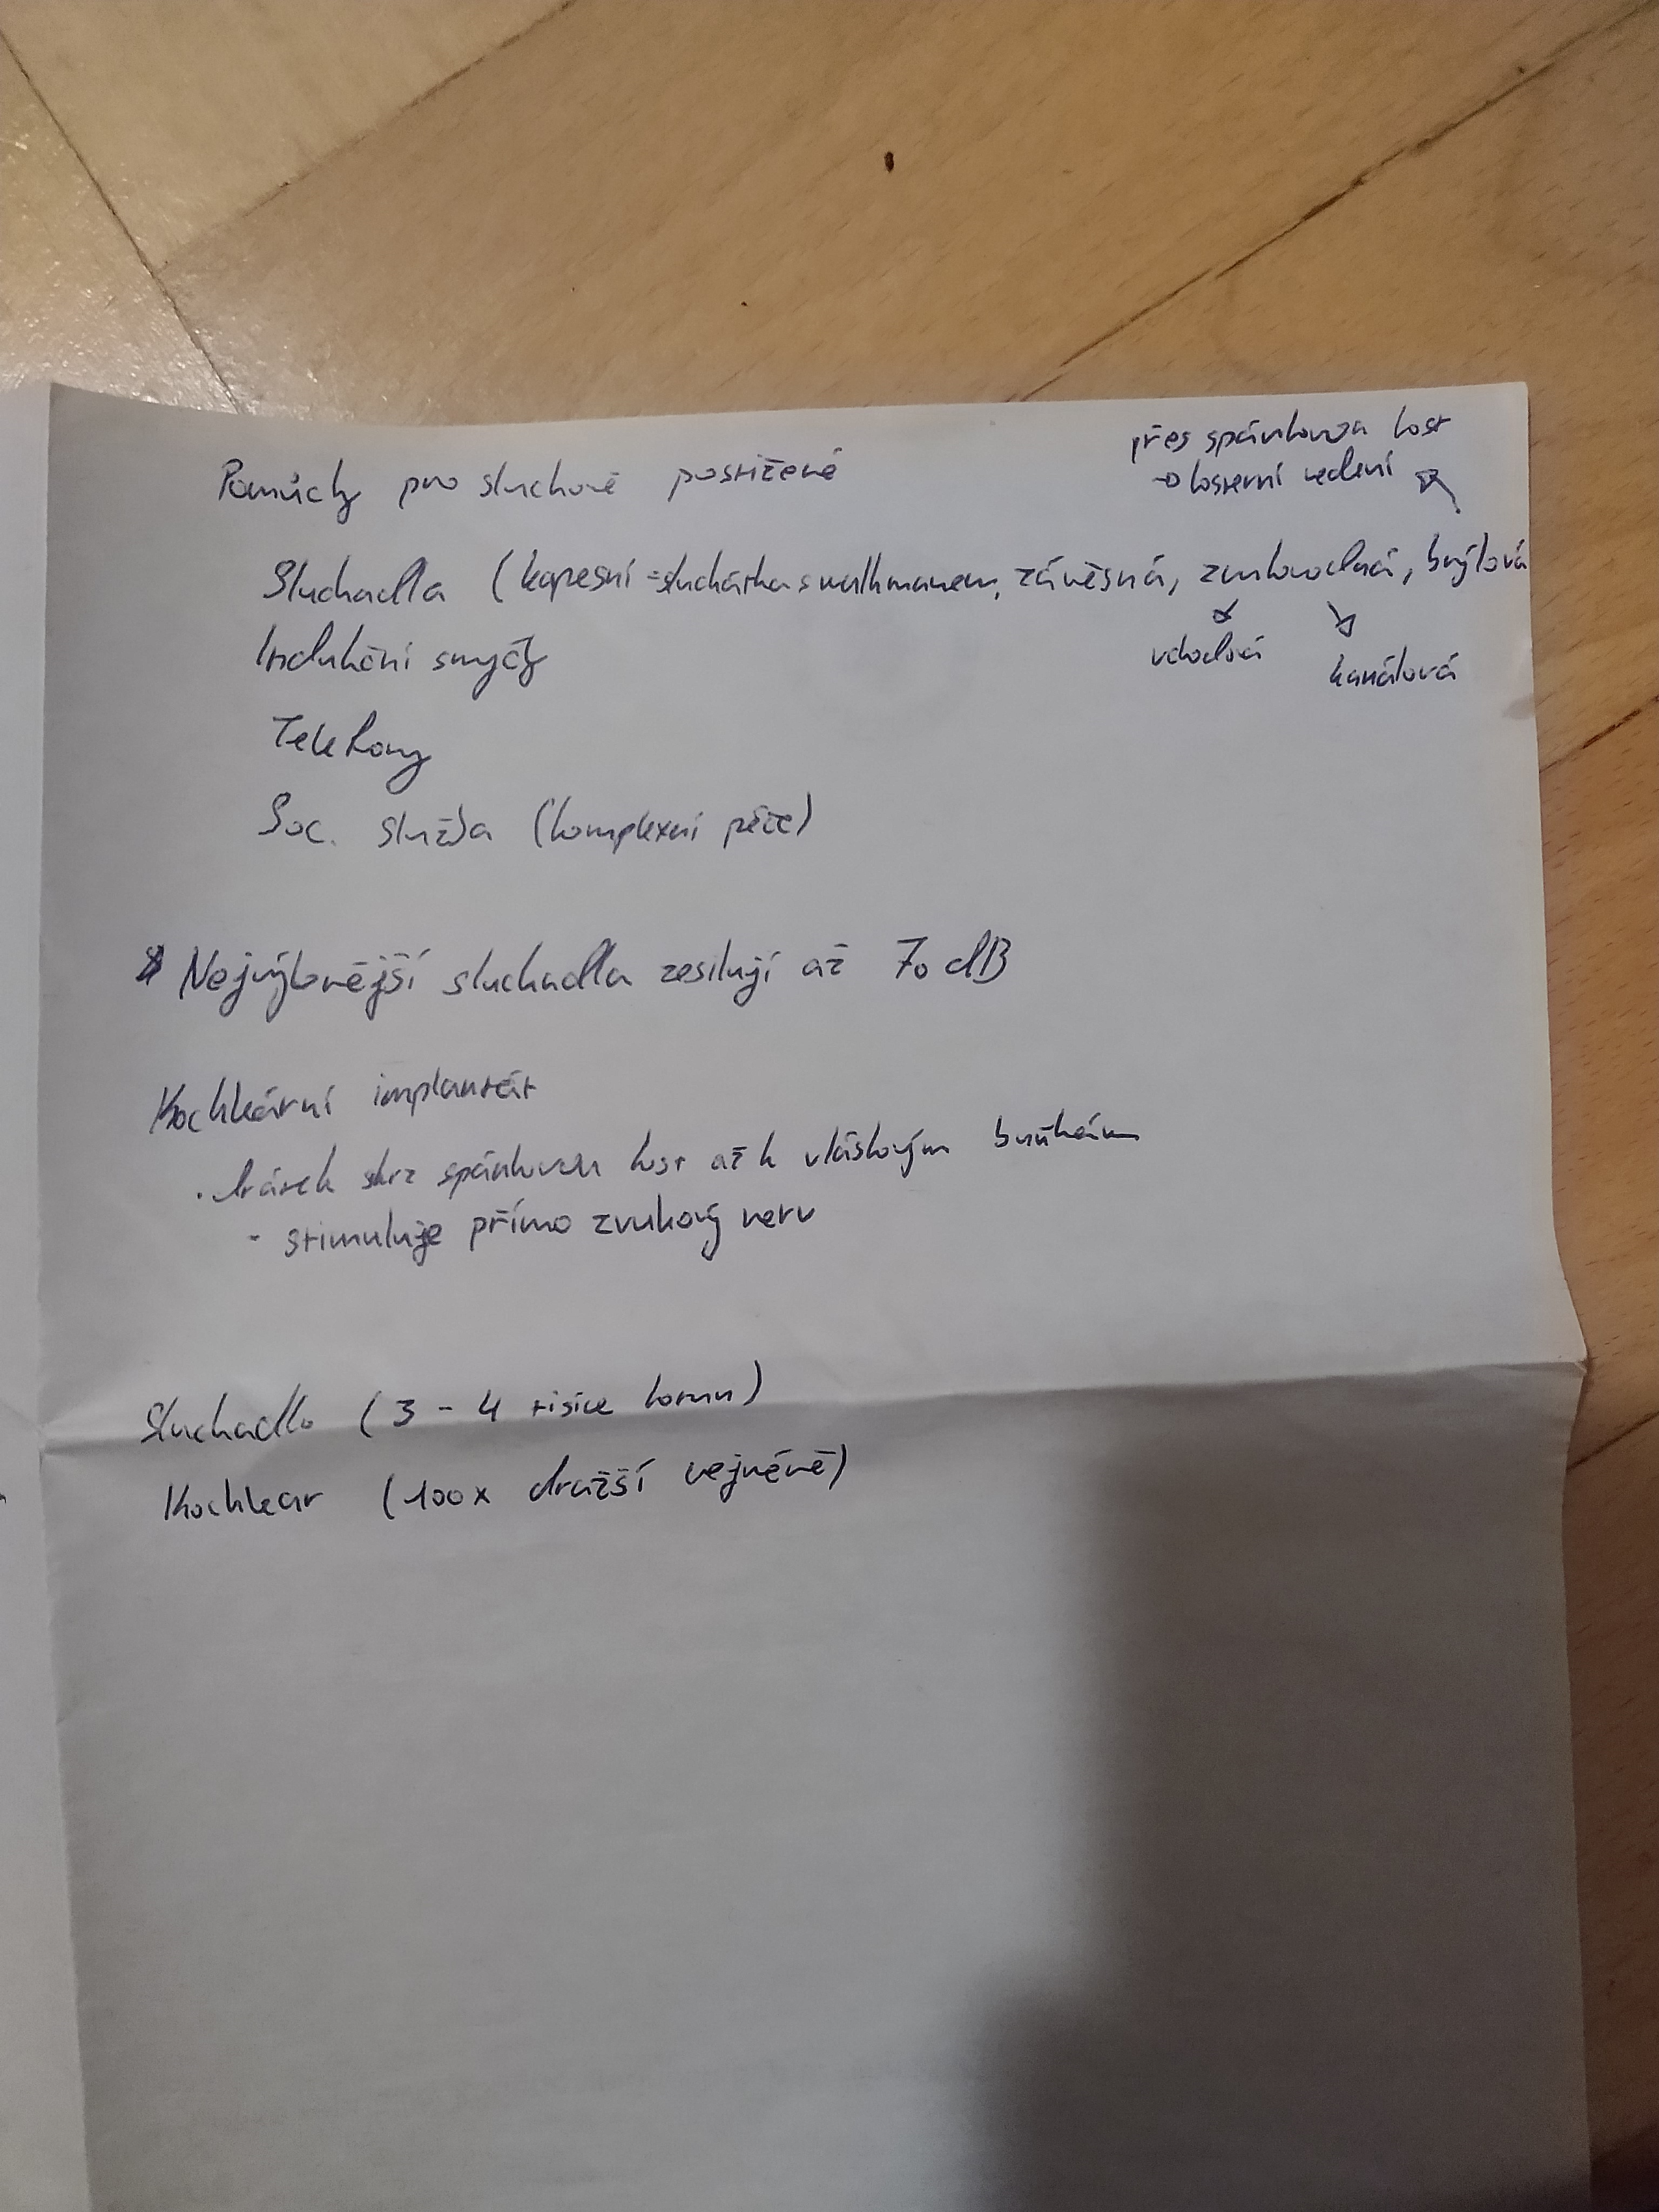 přes spánkovou kost
→ kosterní vedení
Pomůcky pro sluchově postižené
Sluchadla (kapesní = sluchátka s walkmanem, závěsná, zvukovodná, brýlová
vchodová
kanálová
Indukční smyčky
Telefony
Soc. služba (komplexní péče)
Nejvýkonější sluchadla zesilují až 70 dB
Kochleární implantát
· drátek skrz spánkovou kost až k vláskovým buňkám
- stimuluje přímo zvukový nerv
Sluchadlo (3 - 4 tisíce korun)
Kochlear (100x dražší nejméně)